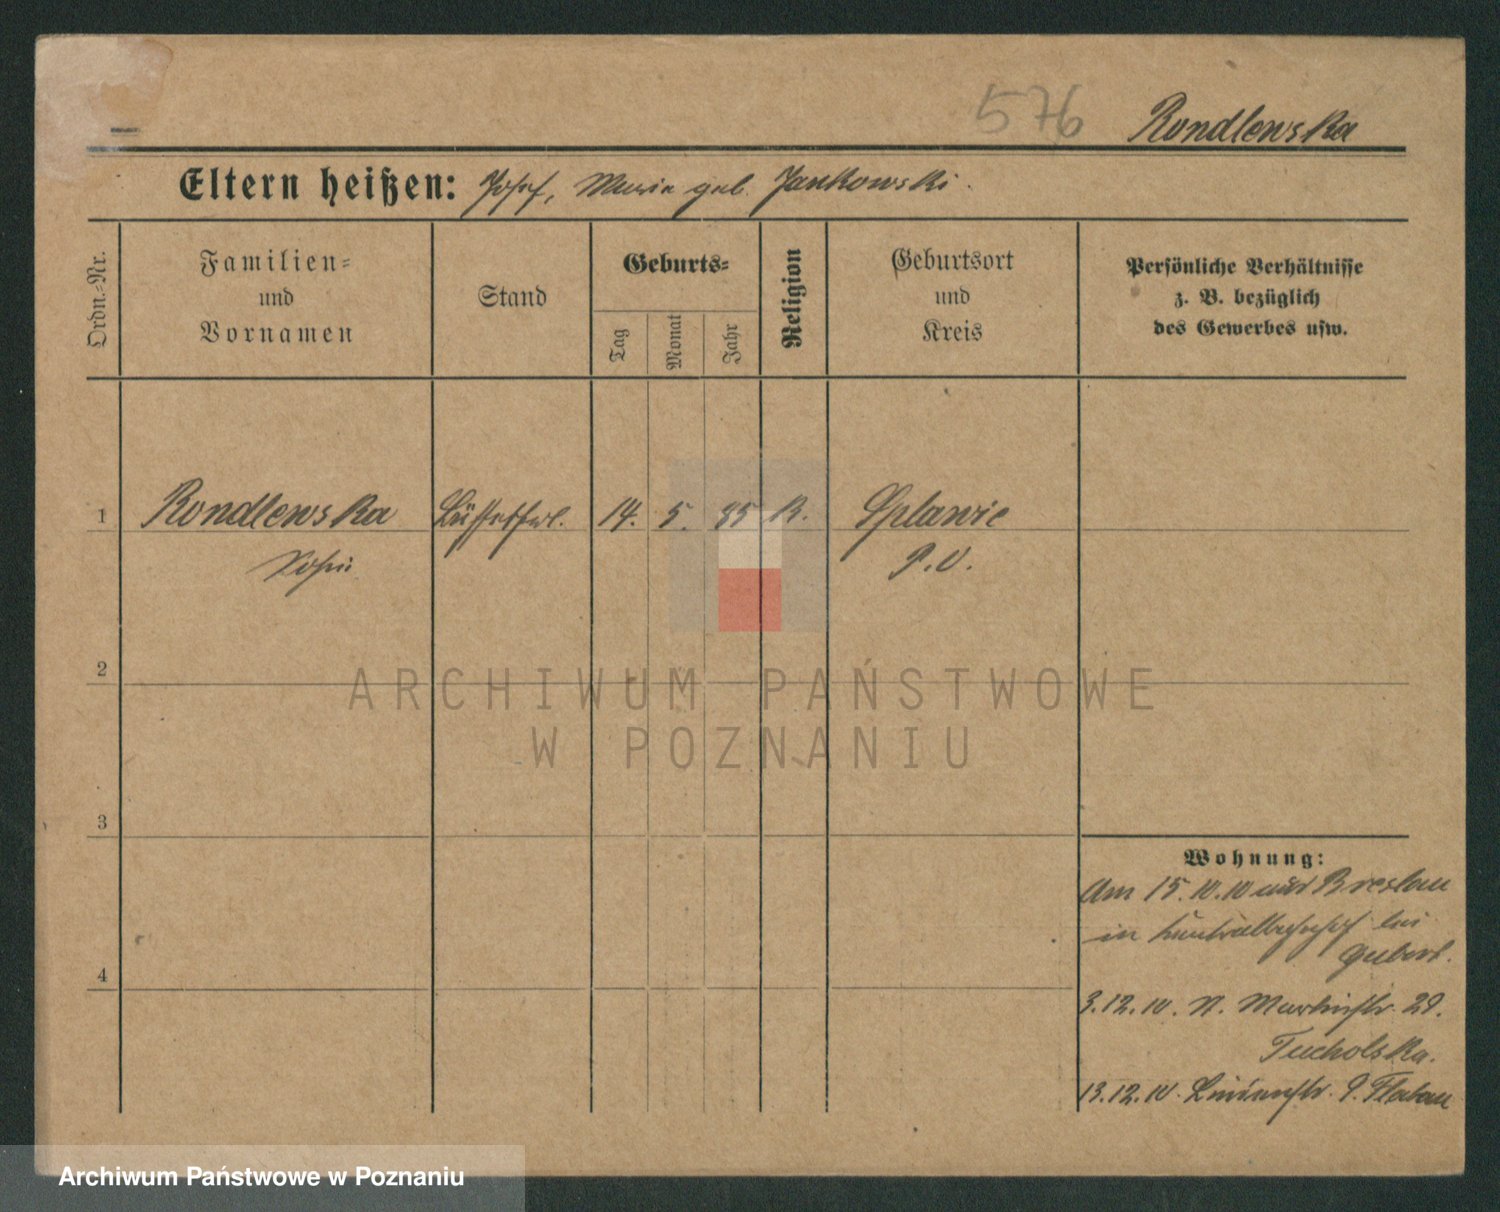 576
Rondlewska
Eltern heißen: Josef, Maria geb. Jankowski.
Ordn.-Nr.
Familien-
und
Vornamen
Stand
Geburts-
Tag
Monat
Jahr
Religion
Geburtsort
und
Kreis
Persönliche Verhältnisse
z. B. bezüglich
des Gewerbes usw.
1 Rondlewska Büffetfrl. 14. 5. 85 K. Splawie
P. O.
2
ARCHIWUM PAŃSTWOWE
W POZNANIU
3
Wohnung:
Am 15.10.10 aus Breslau
in bei
4
3.12.10. St. Martinstr. 29.
Tucholska.
13.12.10. Linienstr. 9. Flatau
Archiwum Państwowe w Poznaniu